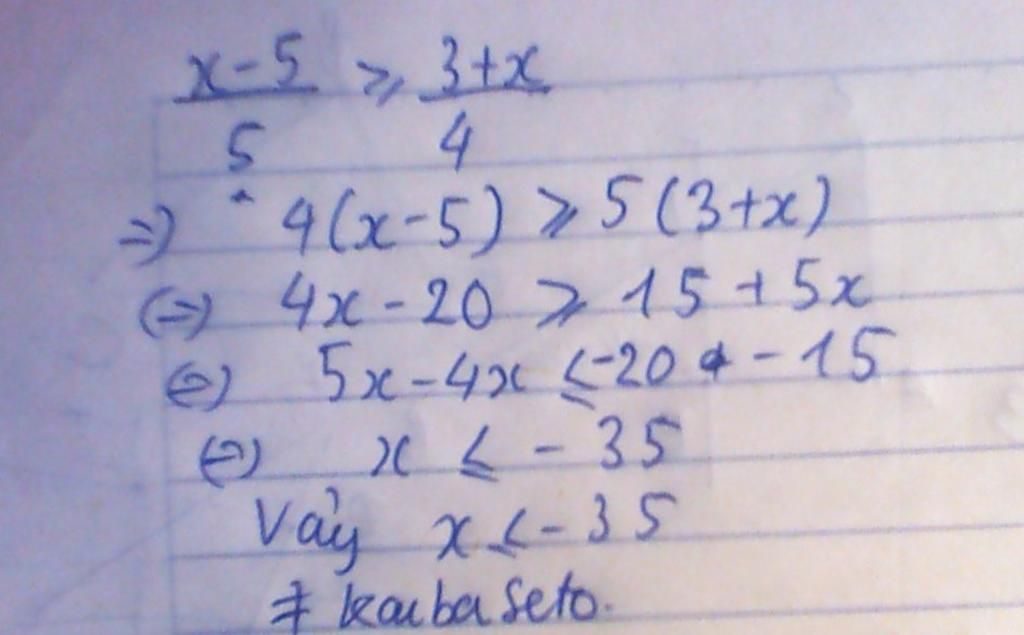 x-5/5 ⩾ 3+x/4
=) 4(x-5) ⩾ 5(3+x)
(=) 4x-20 ⩾ 15+5x
(=) 5x-4x ⩽ -20 - 15
(=) x ⩽ -35
Vảy x ⩽ -35
# kaiba seto.